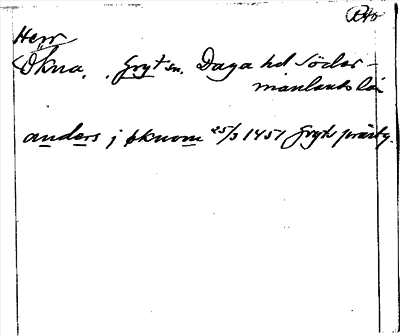 Herr
Ökna. Gryt sn. Daga hd Söder-
manlands län
anders j øknom 25/3 1451 Gryts prästg.